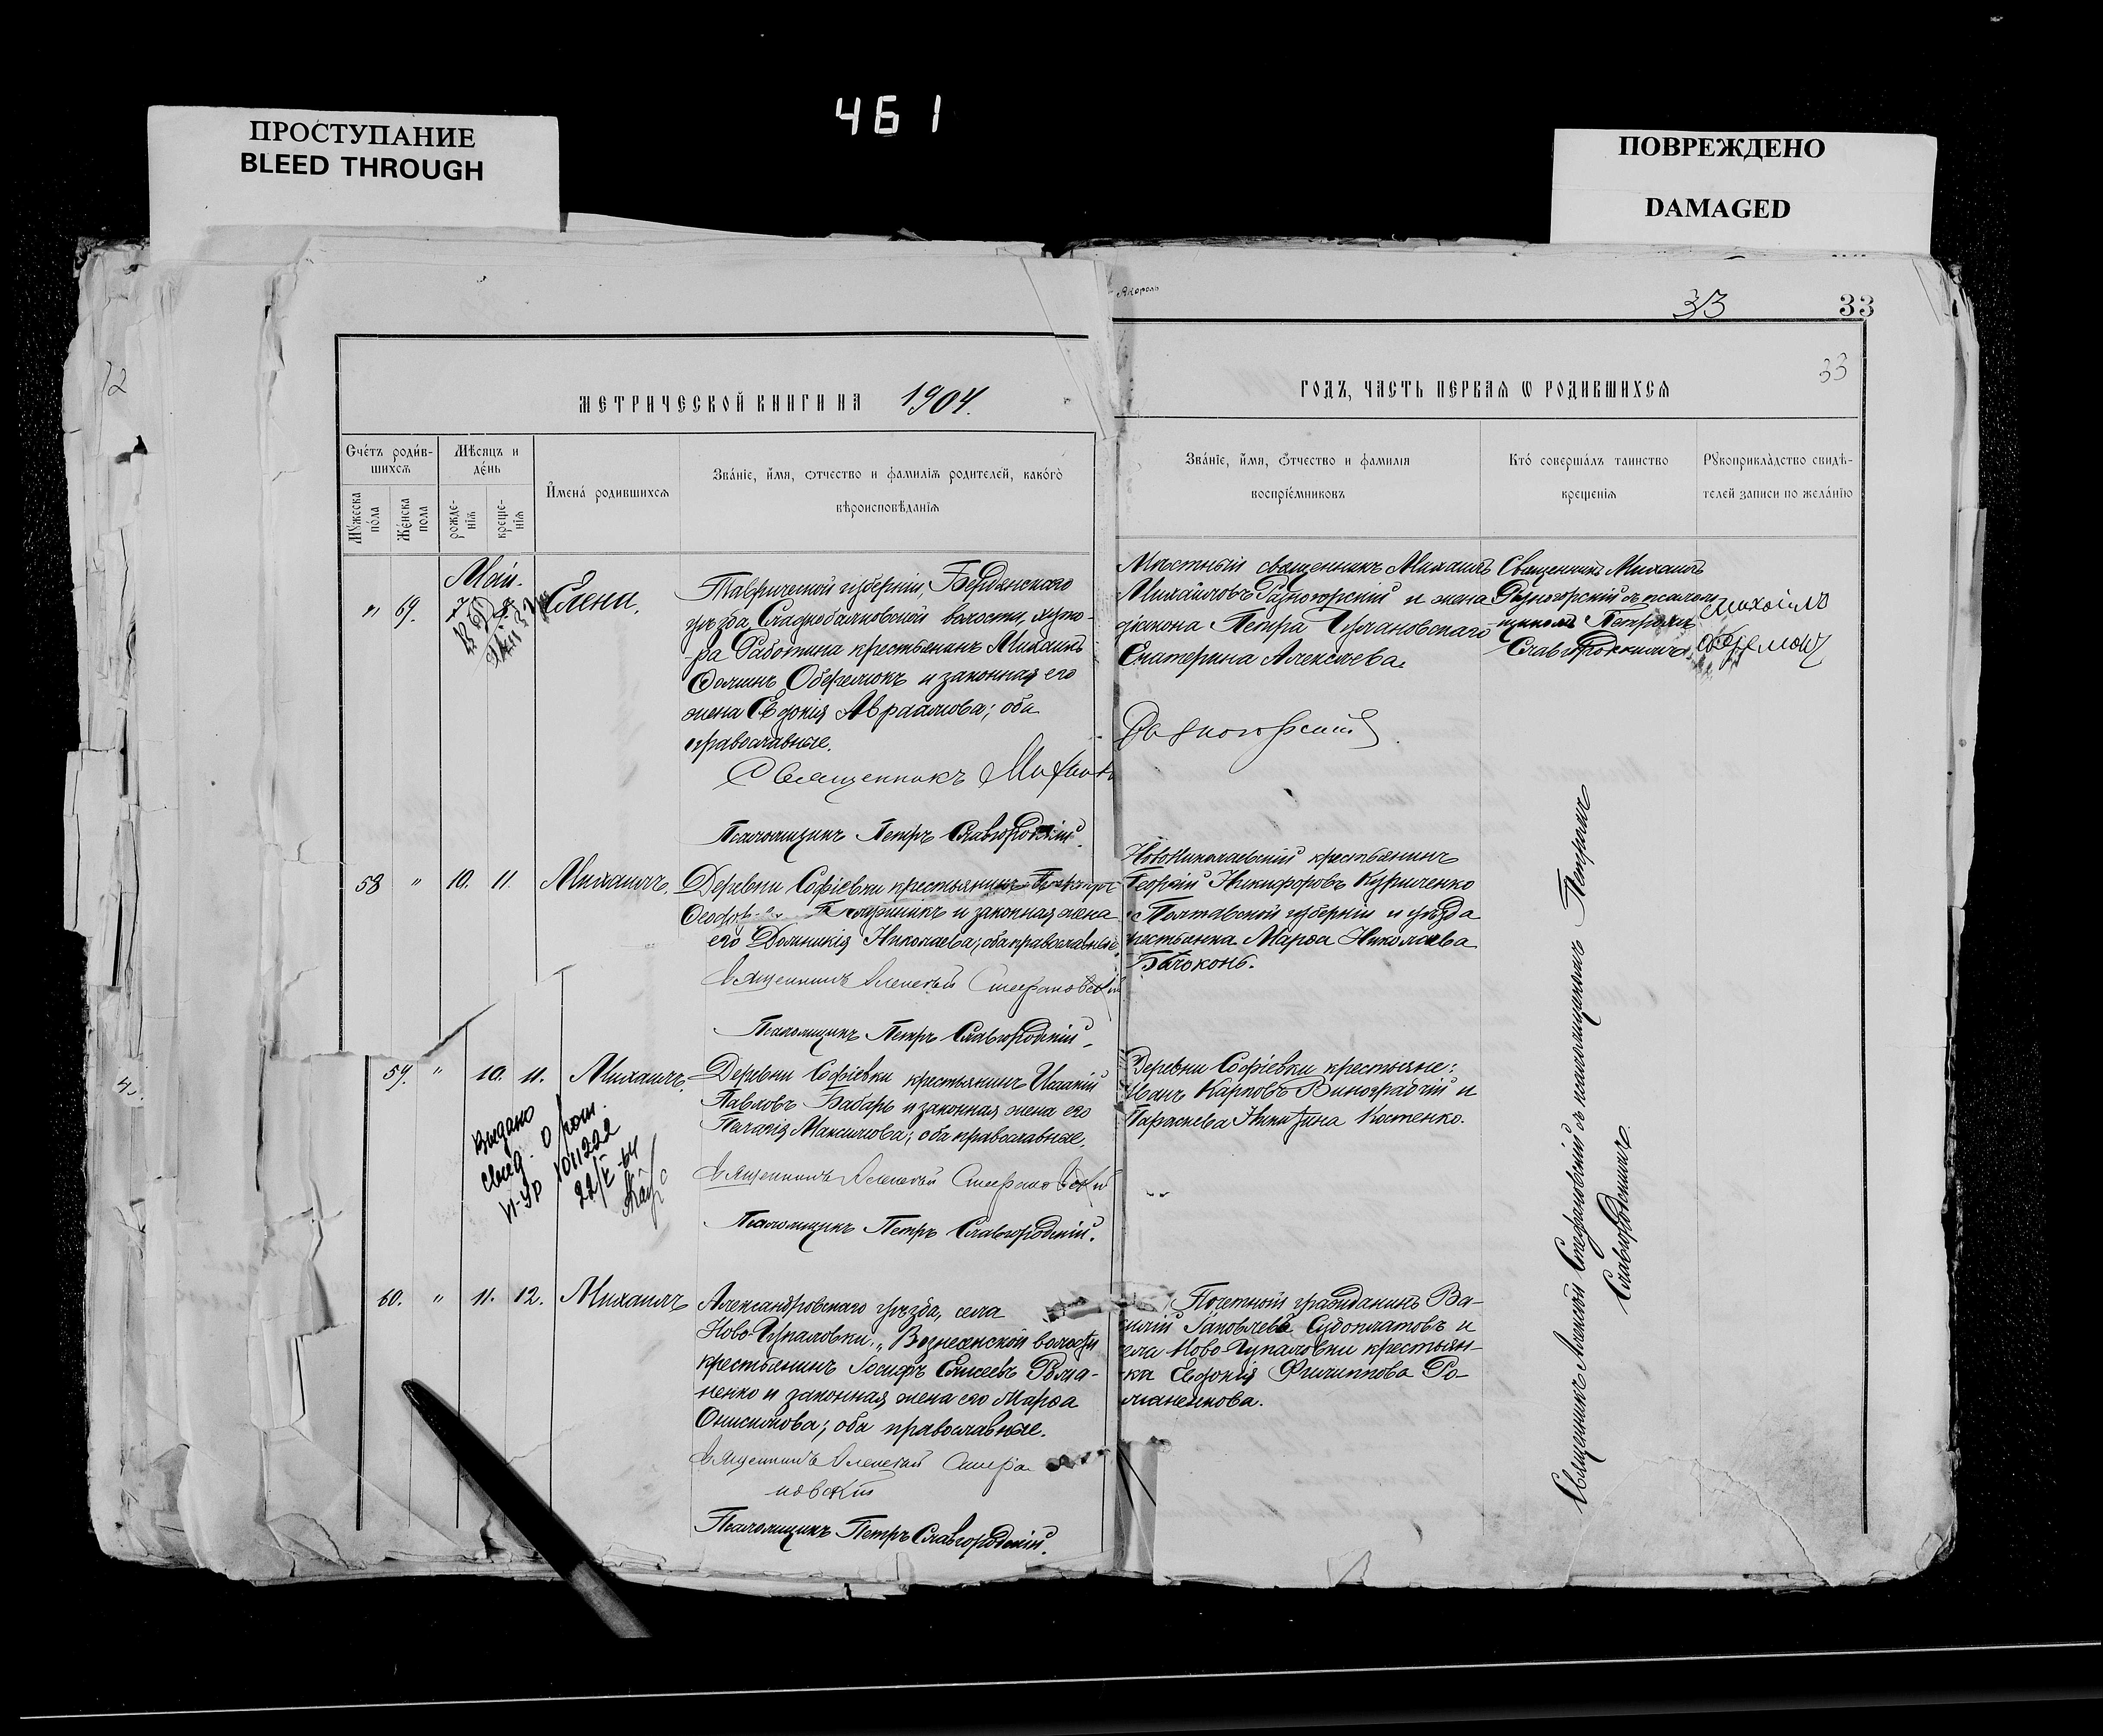 461
ПРОСТУПАНИЕ
BLEED THROUGH
ПОВРЕЖДЕНО
DAMAGED
33
33
33
12
МЕТРИЧЕСКОЙ КНИГИ НА 1904.
ГОДЪ, ЧАСТЬ ПЕРВАЯ Ѡ РОДИВШИХСЯ
Счетъ родив-
шихся
Мѣсяцъ и
день
Мужеска
пола
Женска
пола
рожде-
нія
креще-
нія
Имена родившихся
Званіе, имя, отчество и фамилія родителей, какого
вѣроисповѣданія
Званіе, имя, отчество и фамилія
воспріемниковъ
Кто совершалъ таинство
крещенія
Рукоприкладство свидѣ-
телей записи по желанію
Май.
" 69.
Елена.
Таврической губерніи, Бердянскаго
уѣзда Сладкобалковской волости, хуто-
ра Работина крестьянинъ Михаилъ
Ѳоминъ Оберемокъ и законная его
жена Евдокія Авраамова; оба
православные.
Священникъ
Псаломщикъ Петръ Славгородскій.
Мѣстный священникъ Михаилъ
Михайловъ Разногорскій и жена
діакона Петра
Екатерина Алексѣева.
Разногорскій
Священникъ Михаилъ
Разногорскій съ псалом-
щикомъ Петромъ
Славгородскимъ.
Михаило
Оберемокъ
58 " 10. 11. Михаилъ.
Деревни Софіевки крестьянинъ
и законная жена
его Домникія Николаева; оба православные.
Священникъ Алексѣй Стефановскій
Псаломщикъ Петръ Славгородскій.
Новониколаевскій крестьянинъ
Георгій Никифоровъ Кухаренко
и Полтавской губерніи и уѣзда
крестьянка Марѳа Николаева
Бѣлоконь.
59. " 10. 11. Михаилъ.
Деревни Софіевки крестьянинъ Исакій
Павловъ Бабарь и законная жена его
Пелагія Максимова; оба православные.
Священникъ Алексѣй Стефановскій
Псаломщикъ Петръ Славгородскій.
Деревни Софіевки крестьяне:
Иванъ Карповъ Виноградчій и
Параскева Никитина Костенко.
Выдано
свид. о рожд.
22/V-64
60. " 11. 12. Михаилъ
Александровскаго уѣзда, села
Ново-Гупаловки, Вознесенской волости
крестьянинъ Іосифъ Елисеевъ Рома-
ненко и законная жена его Марѳа
Онисимова; оба православные.
Священникъ Алексѣй Стефа-
новскій
Псаломщикъ Петръ Славгородскій.
Почетный гражданинъ Ва-
силій Іаковлевъ Судоплатовъ и
села Ново-Гупаловки крестьян-
ка Евдокія Филиппова Ро-
маненкова.
Священникъ Алексѣй Стефановскій съ псаломщикомъ Петромъ
Славгородскимъ.